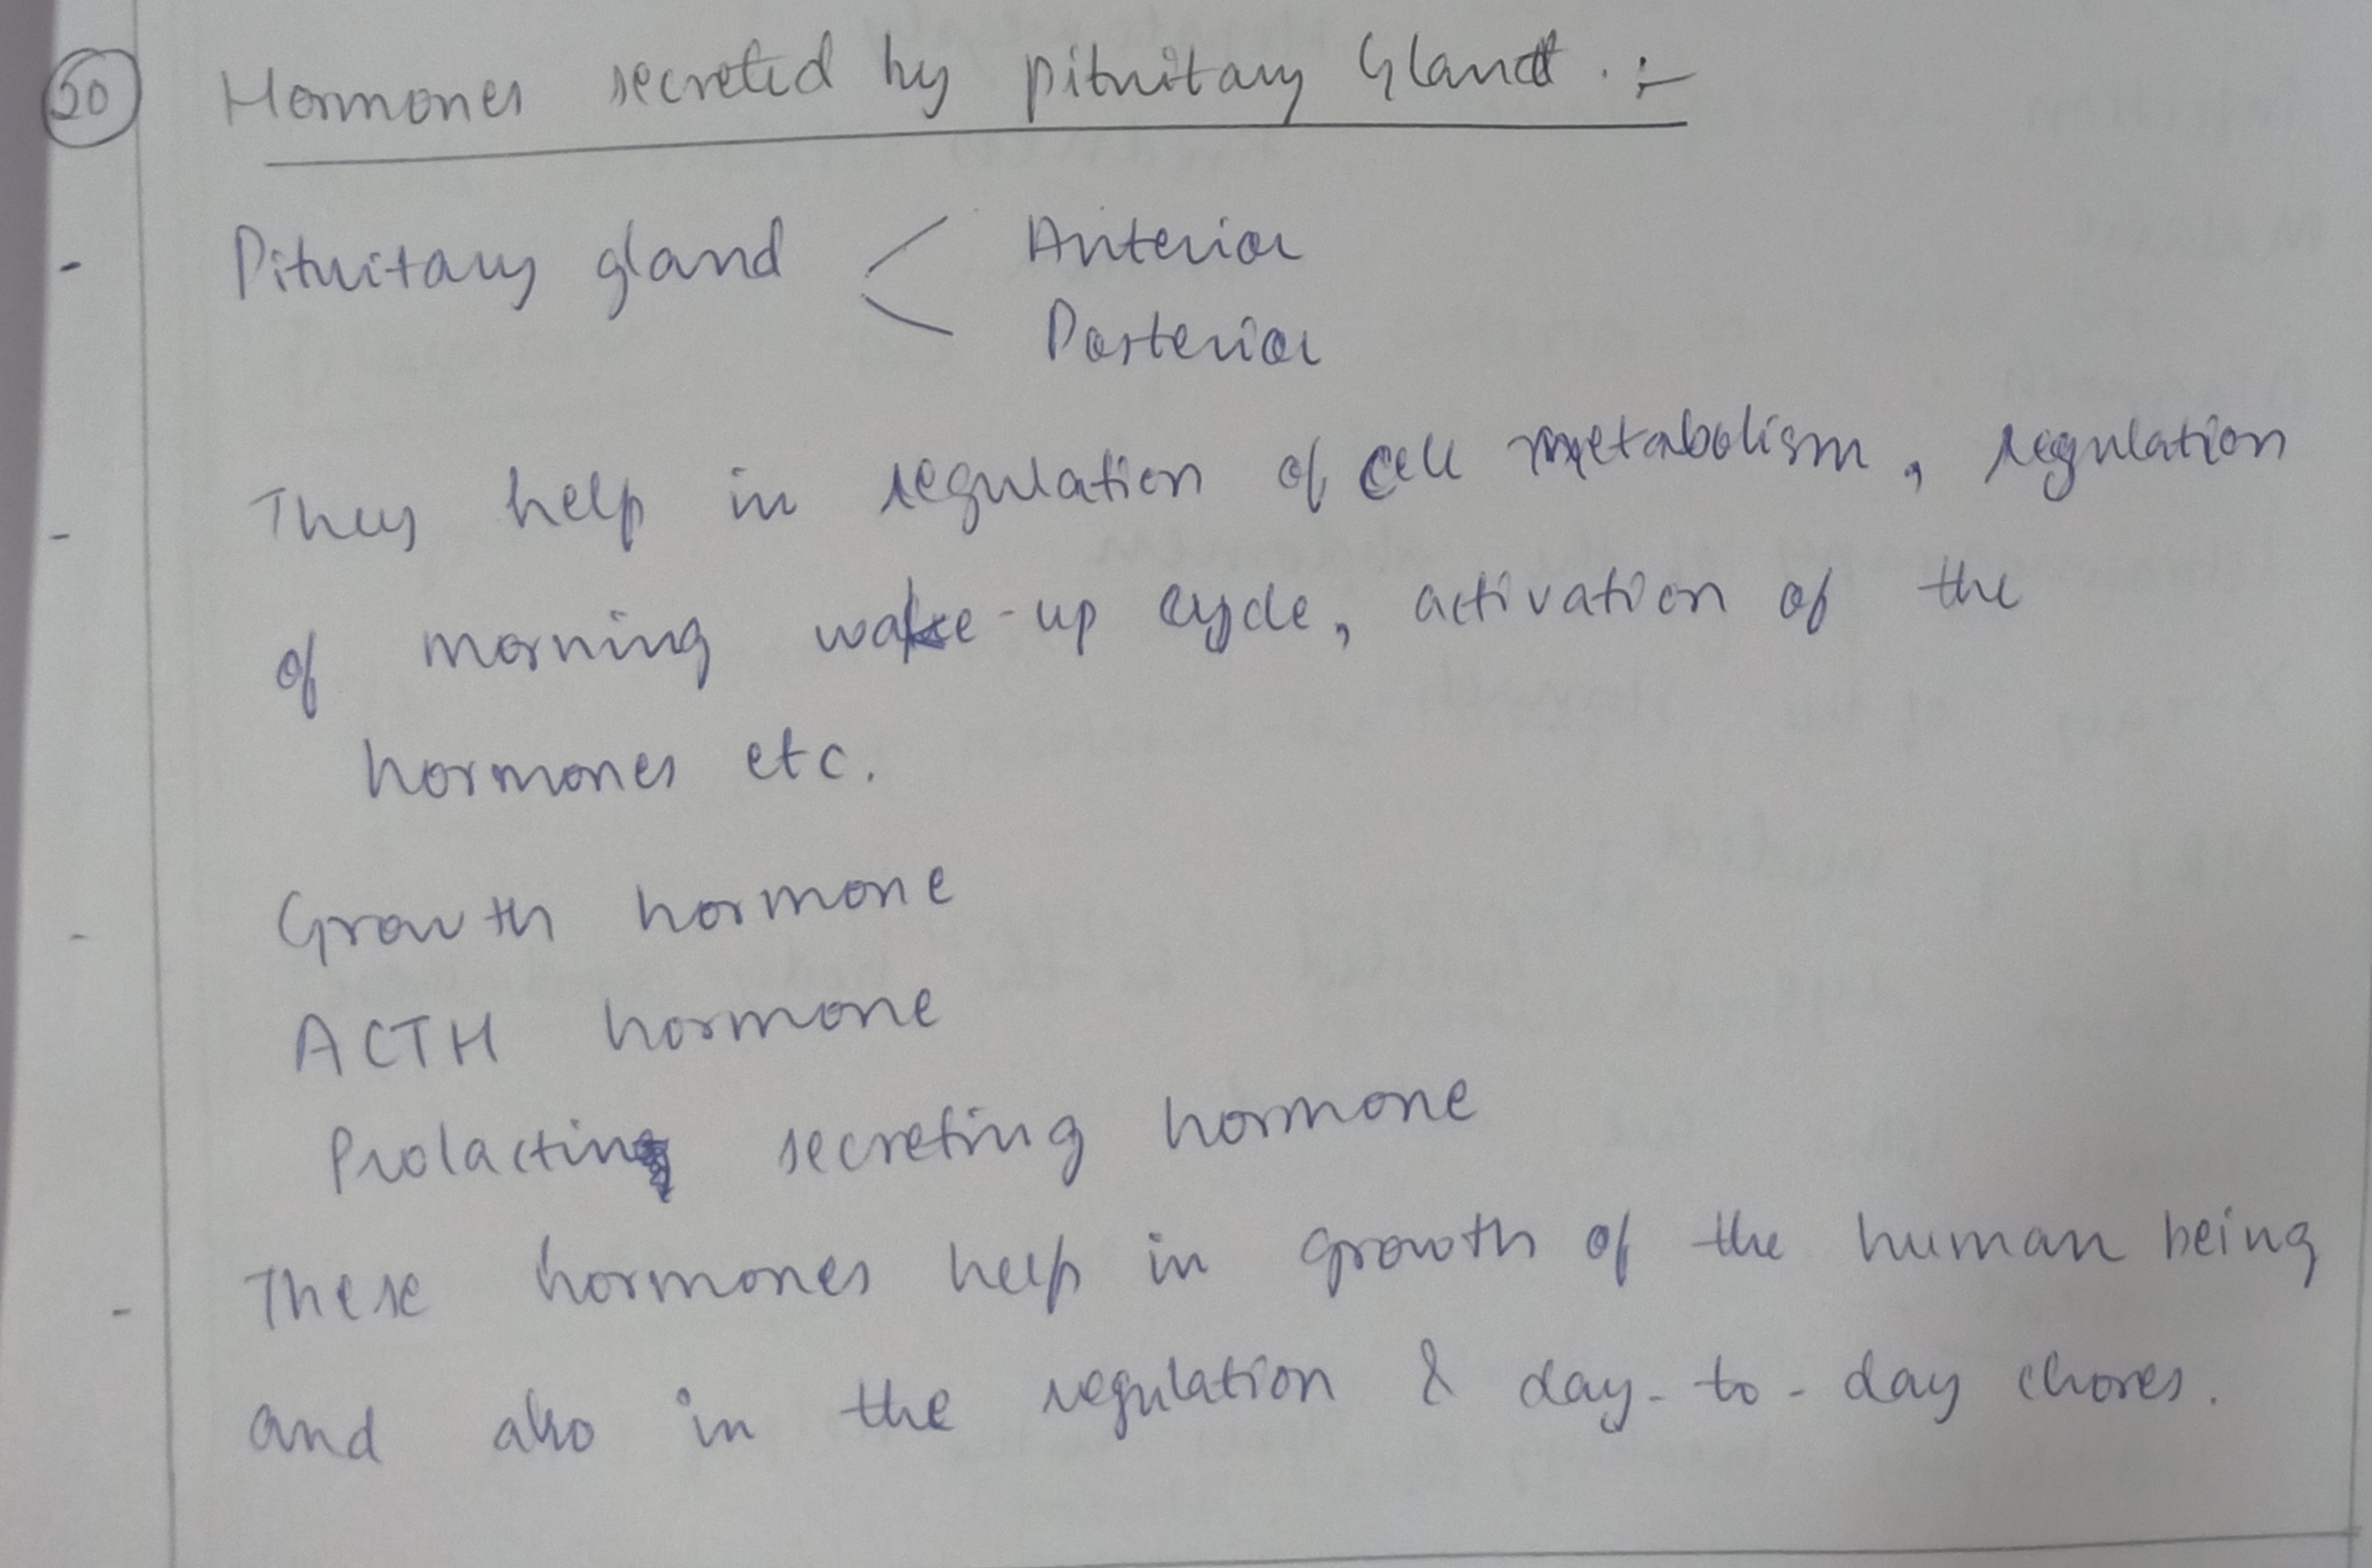 50 Hormones secreted by pituitary Gland :-
- Pituitary gland < Anterior
Posterior
- They help in regulation of cell metabolism, regulation
of morning wake-up cycle, activation of the
hormones etc.
- Growth hormone
ACTH hormone
Prolactin secreting hormone
- These hormones help in growth of the human being
and also in the regulation & day-to-day chores.